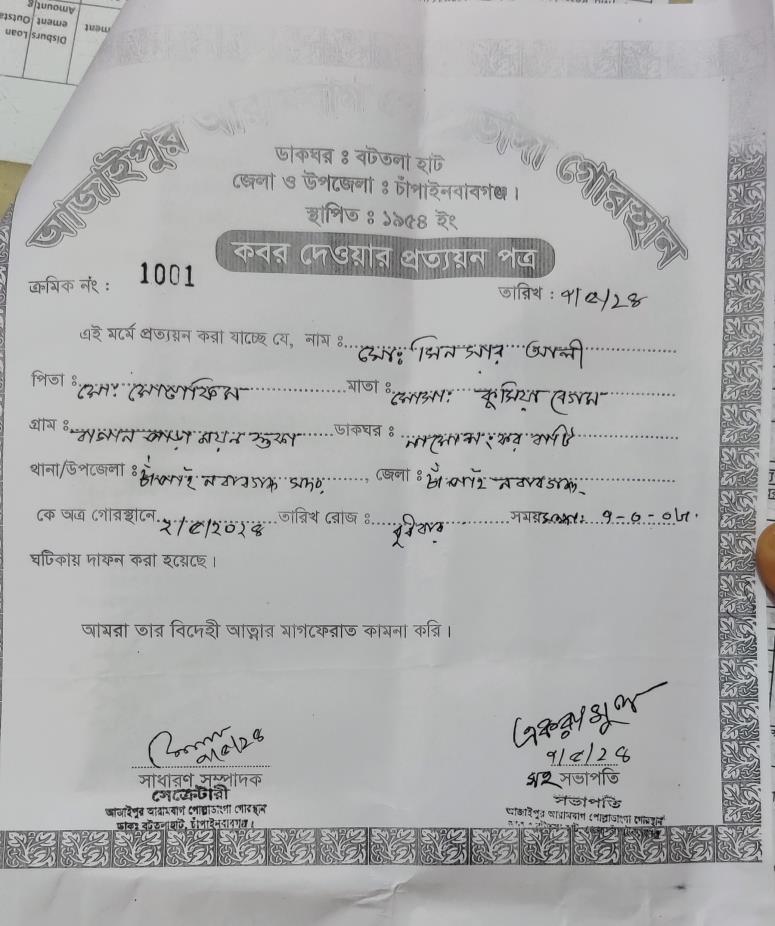 Disburs
ement
Amount
Loan
Outsta
আজাইপুর আরামবাগ গোরস্থান
ডাকঘর ঃ বটতলা হাট
জেলা ও উপজেলা ঃ চাঁপাইনবাবগঞ্জ।
স্থাপিত ঃ ১৯৫৪ ইং
কবর দেওয়ার প্রত্যয়ন পত্র
ক্রমিক নং : 1001
তারিখ : ৭/৫/২৪
এই মর্মে প্রত্যয়ন করা যাচ্ছে যে, নাম ঃ মোঃ আলী
পিতা ঃ মোঃ মাতা ঃ মোসাঃ বেগম
গ্রাম ঃ ডাকঘর ঃ
থানা/উপজেলা ঃ চাঁপাই নবাবগঞ্জ সদর, জেলা ঃ চাঁপাই নবাবগঞ্জ
কে অত্র গোরস্থানে ২/৫/২০২৪ তারিখ রোজ ঃ সময়
ঘটিকায় দাফন করা হয়েছে।
আমরা তার বিদেহী আত্নার মাগফেরাত কামনা করি।
৭/৫/২৪
সাধারণ সম্পাদক
সেক্রেটারী
আজাইপুর আরামবাগ পোল্লাডাংগা গোরস্থান
ডাকঃ বটতলাহাট, চাঁপাইনবাবগঞ্জ।
একরামুল
৭/৫/২৪
সহ সভাপতি
সভাপতি
আজাইপুর আরামবাগ পোল্লাডাংগা গোরস্থান